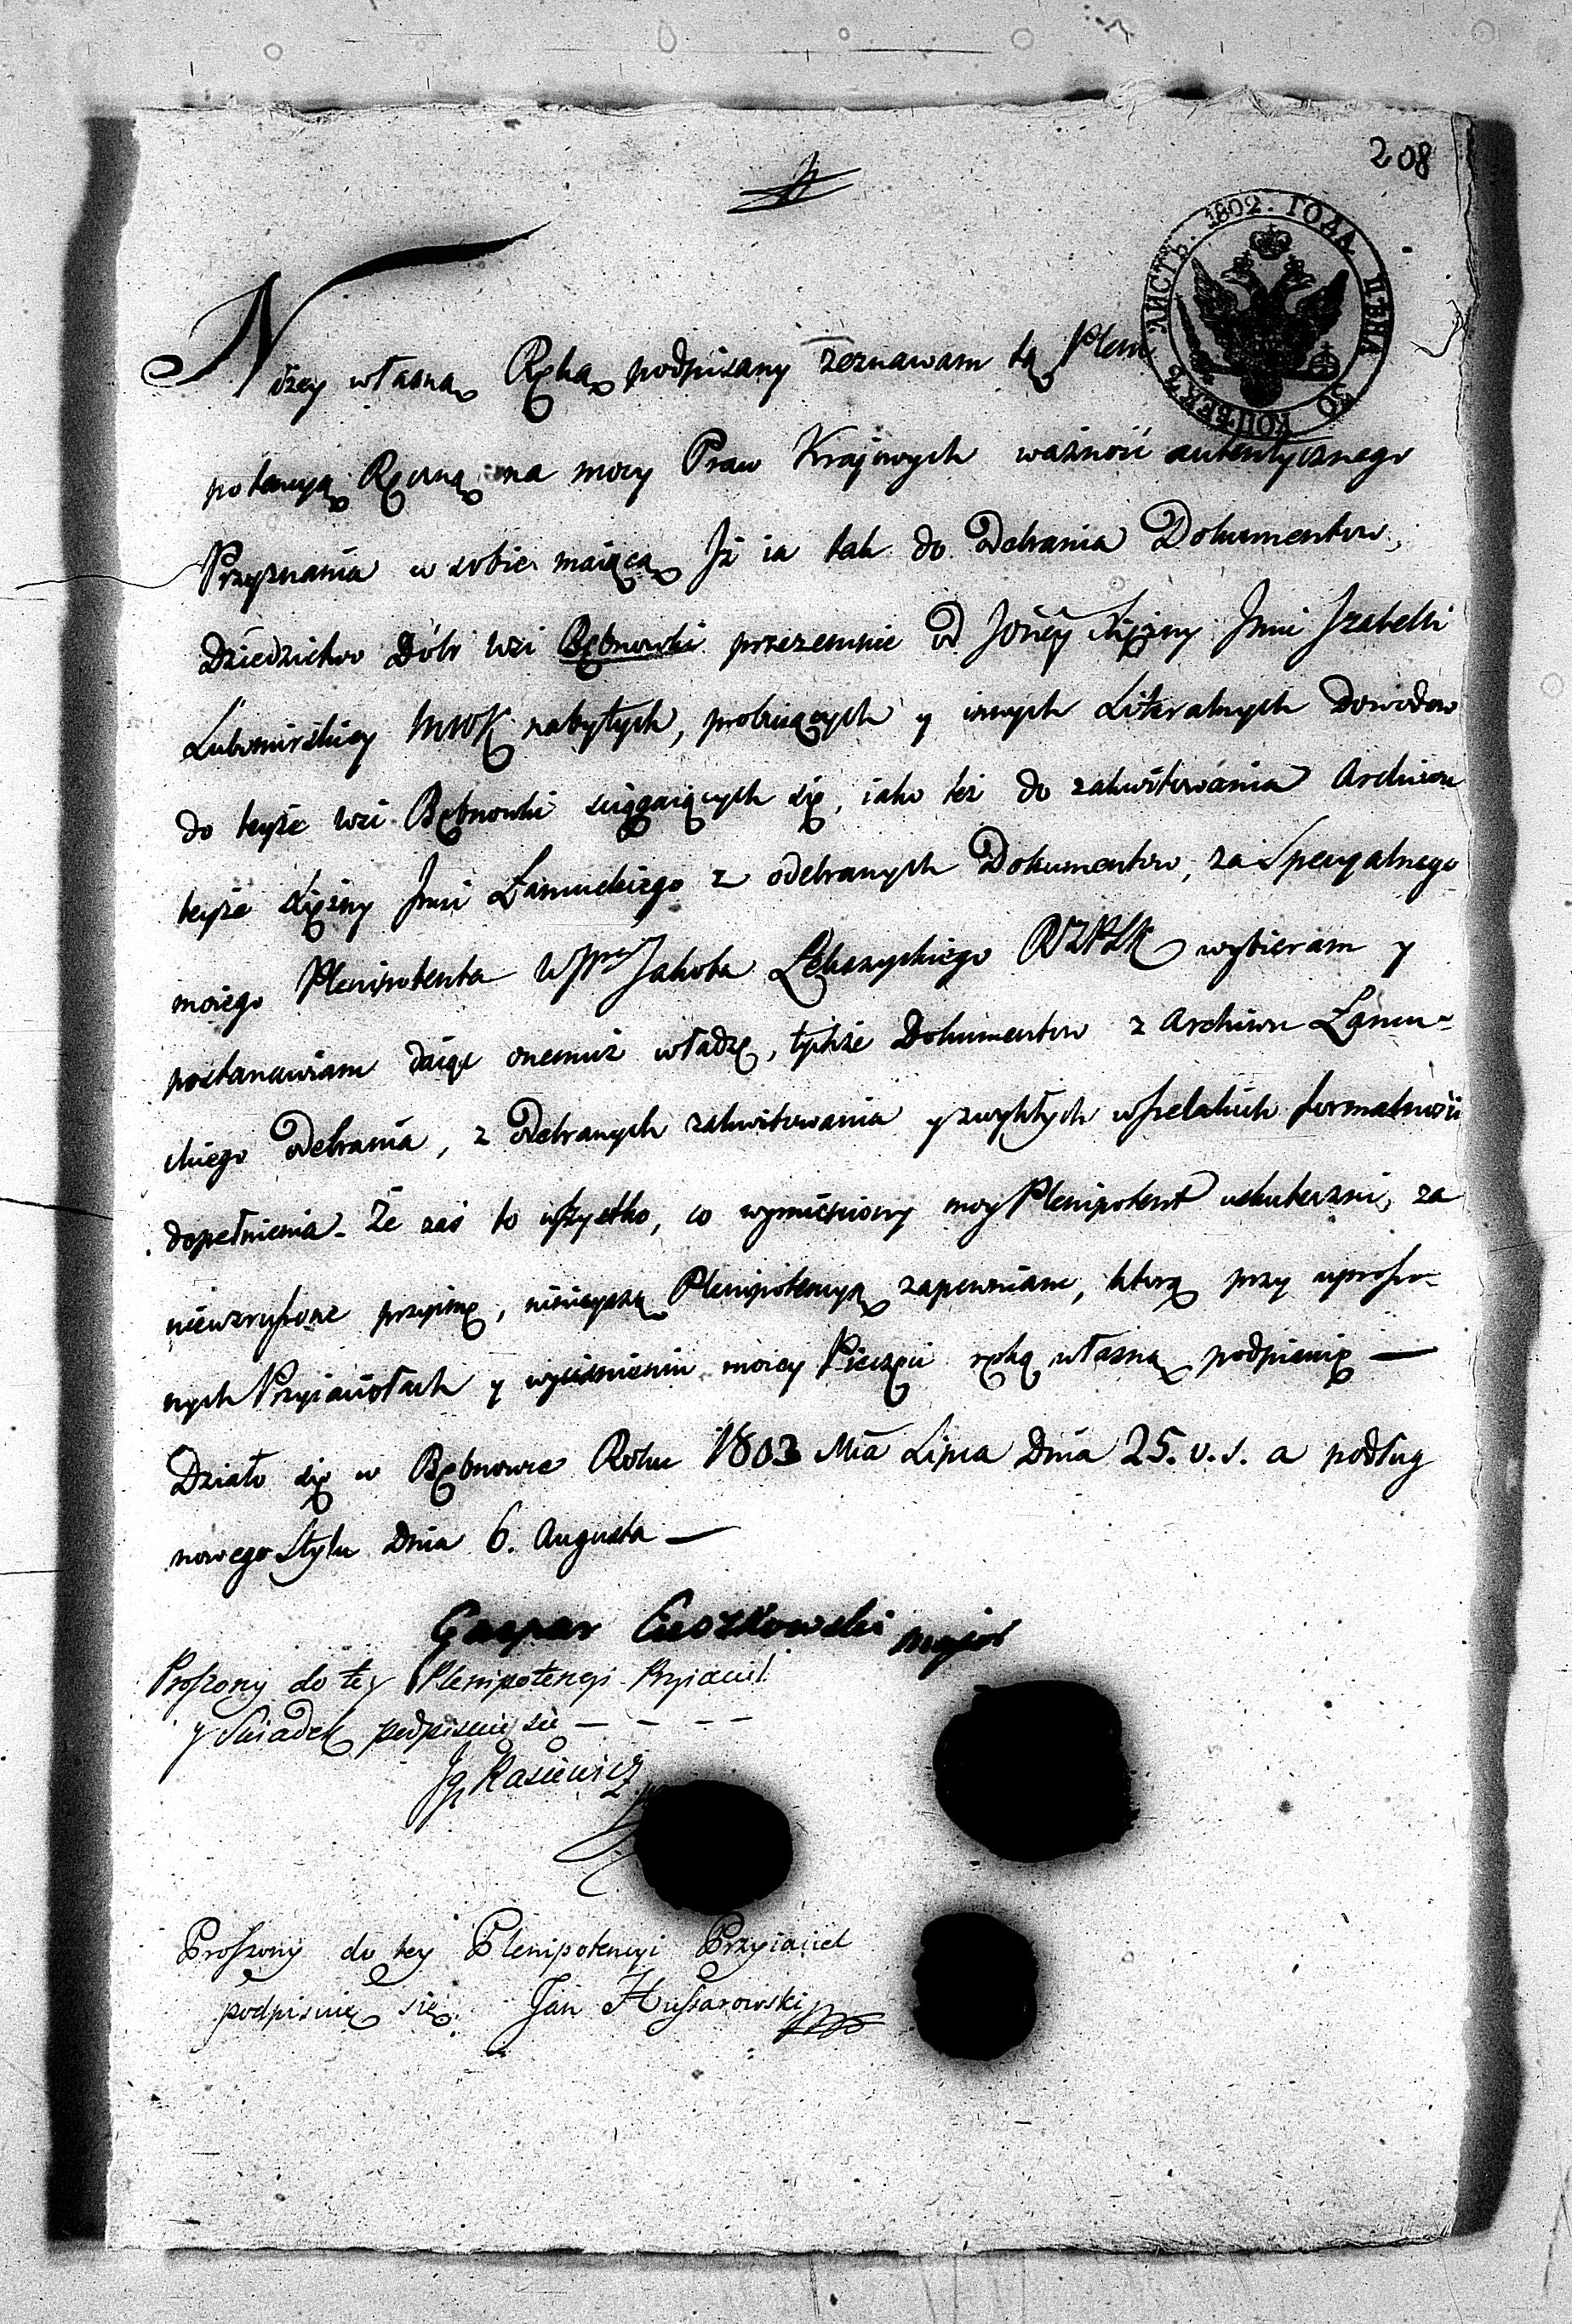 208
ЛИСТЪ. 1802. ГОДА ЦѢНА 50 КОПѢЕКЪ
Niżey własną Ręką podpisany zeznawam tą Pleni
potencyą Ręczną na mocy Praw Krajowych ważność autentycznego
Przyznania w sobie maiącą Iż ia tak do Odebrania Dokumentow,
Dziedzictwo Dóbr Wsi Bębnowki przezemnie od JOney Xiężny Jmci Izabelli
Lubomirskiey MWK nabytych, probuiących y innych Literalnych Dowodow
do teyże Wsi Bębnowki sciągaiących się, iako też do zakwitowania Archiwu
teyże Xiężny Jmci Łancuckiego z odebranych Dokumentow, za Specyalnego
moiego Plenipotenta Jakoba wybieram y
postanawiam daiąc onemuż władzę, tychże Dokumentow z Archiwu Łancu-
ckiego Odebrania, z Odebranych zakwitowania y zwykłych wszelakich formalności
dopełnienia. Że zaś to wszystko, co wymieniony moy Plenipotent uskuteczni, za
niewzruszone przyimę, ninieyszą Plenipotencyą zapewniam, ktorą przy uproszo-
nych Przyiaciołach y wyciśnieniu moiey Pieczęci ręką własną podpisuię —
Działo się w Bębnowce Roku 1803 Mca Lipca Dnia 25. v. s. a podług
nowego Stylu Dnia 6. Augusta —
Gaspar Cieszkowski major
Proszony do tey Plenipotencyi Przyiaciel
y Swiadek podpisuię się — — — —
Ig. Kasiewicz
Proszony do tey Plenipotencyi Przyiaciel
podpisuię się. Jan Hussarowski